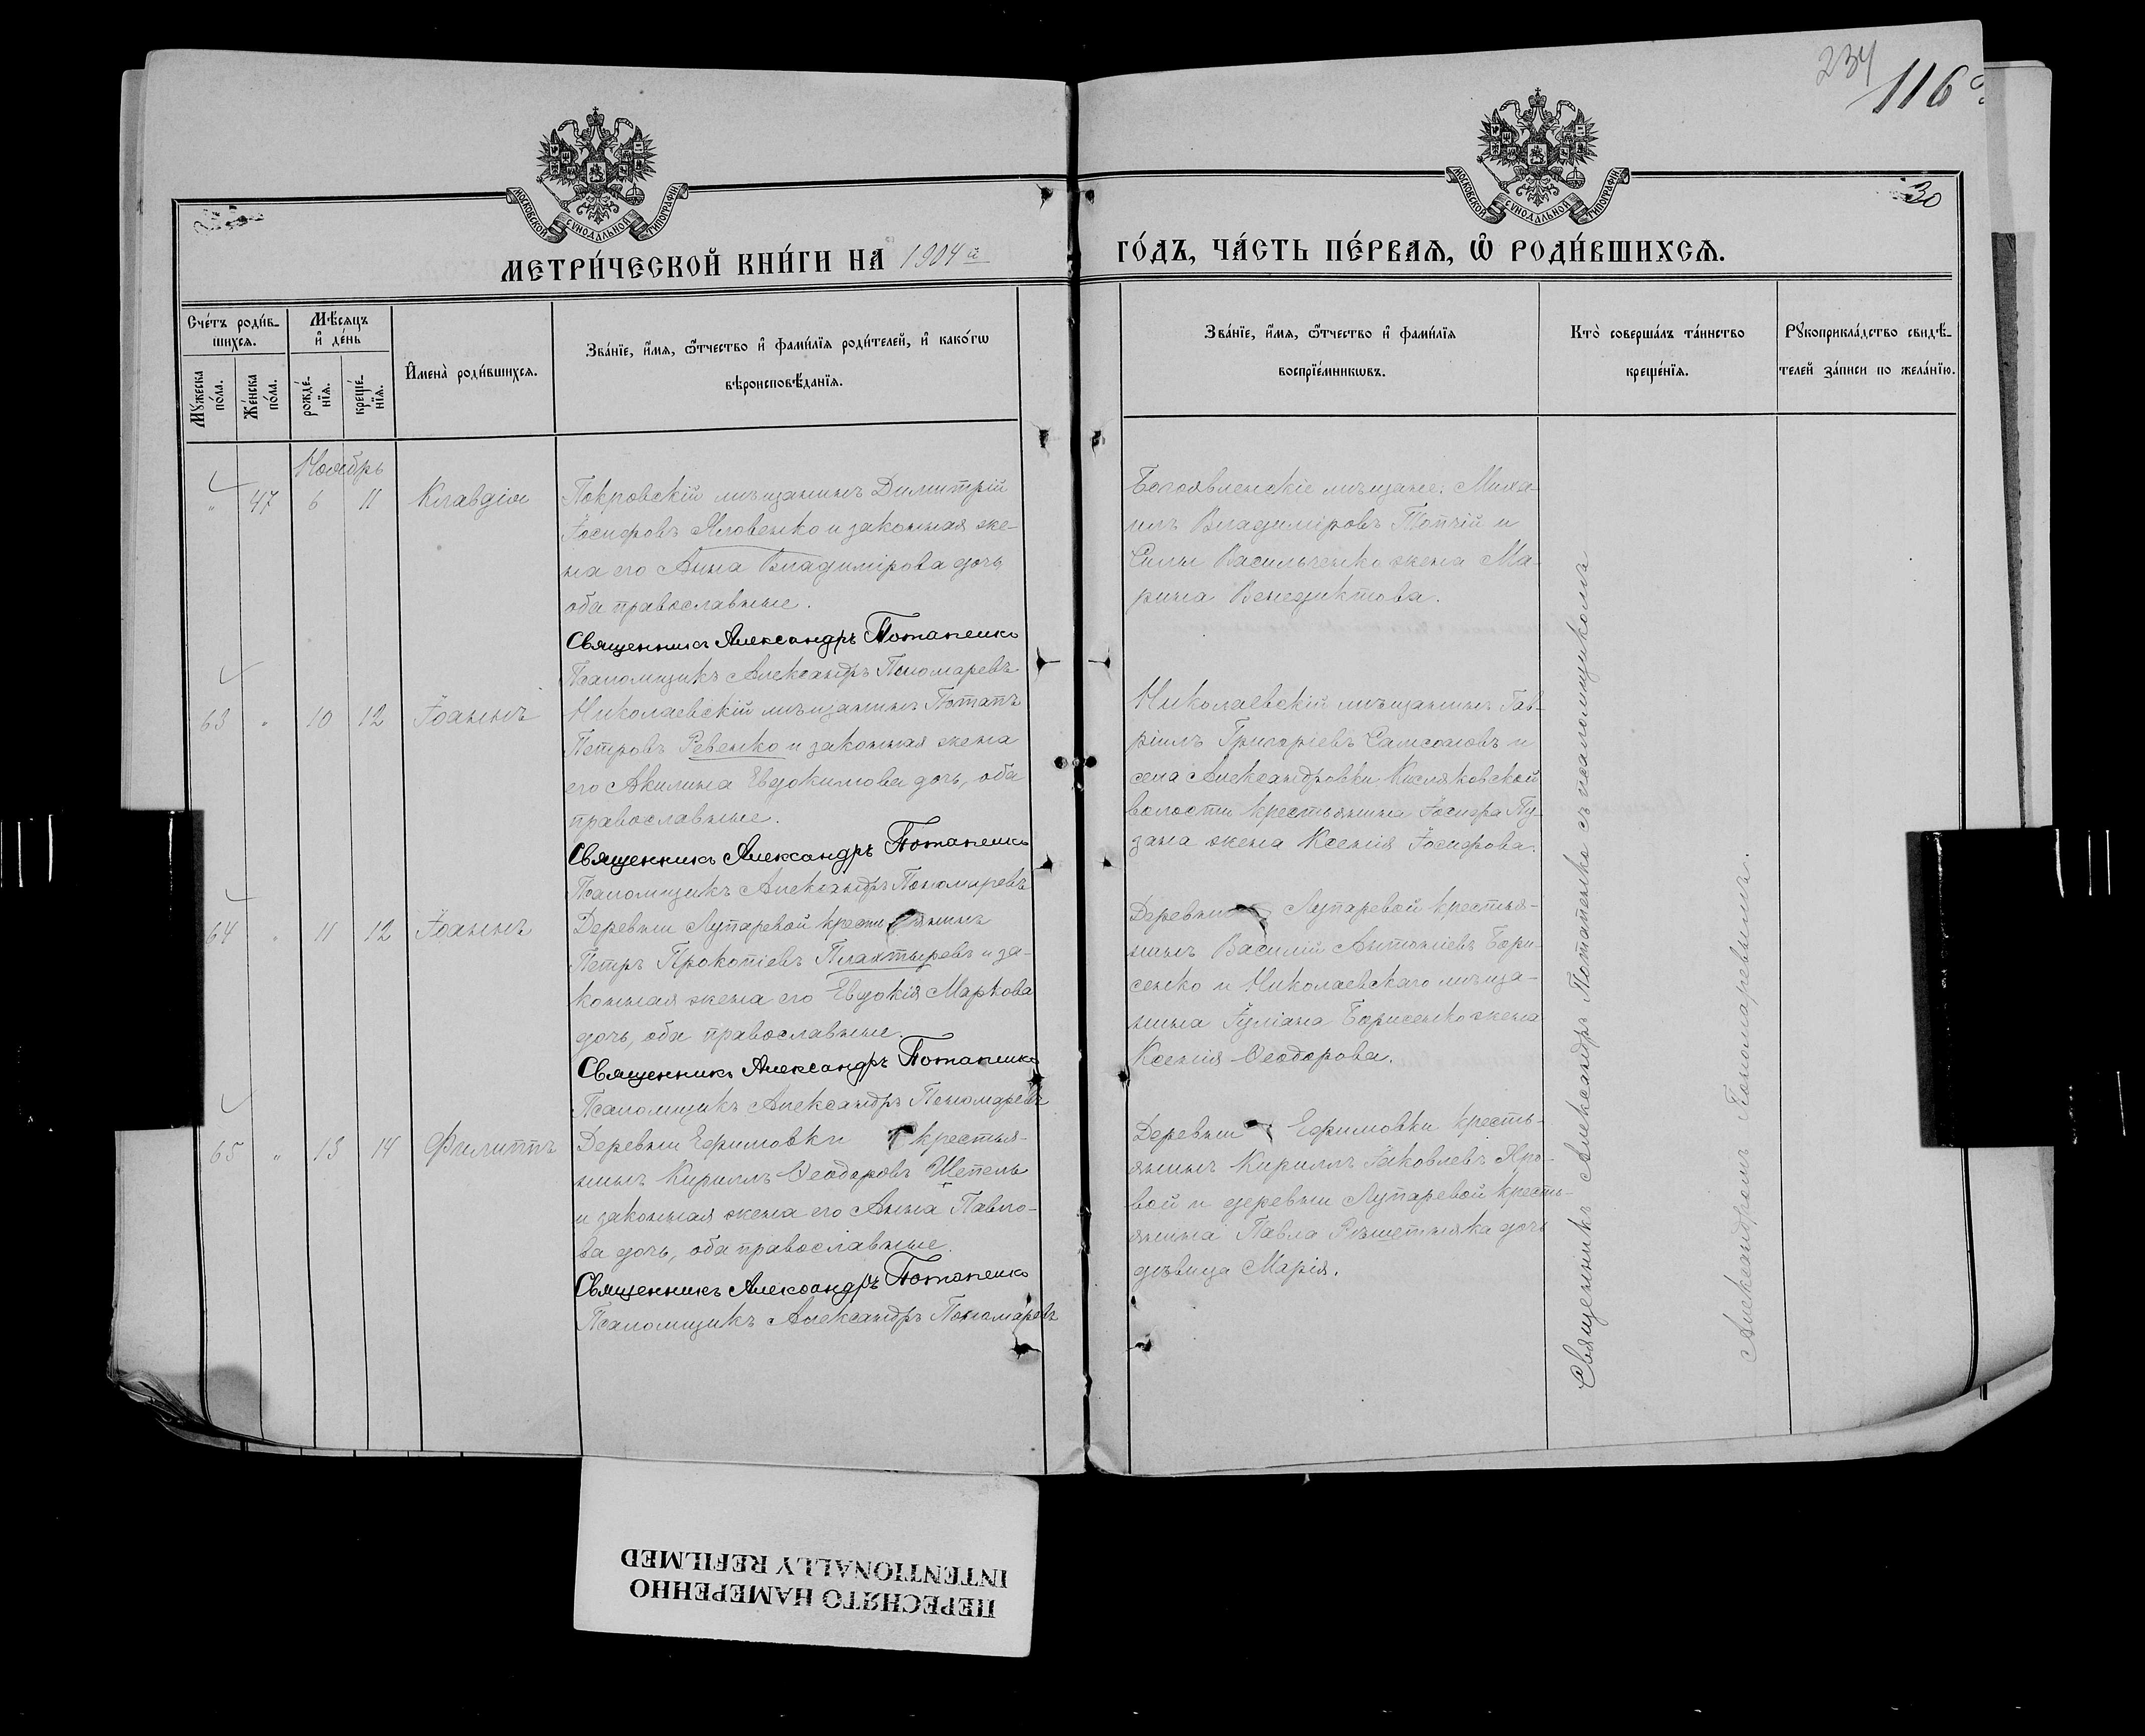 234
116
30
МОСКОВСКОЙ СѴНОДАЛЬНОЙ ТИПОГРАФІИ
МОСКОВСКОЙ СѴНОДАЛЬНОЙ ТИПОГРАФІИ
МЕТРИ́ЧЕСКОЙ КНИ́ГИ НА 1904й ГО́ДЪ, ЧА́СТЬ ПЕ́РВАѦ, Ѡ҆ РОДИ́ВШИХСѦ.
Сче́тъ роди́в-
шихсѧ.
Мꙋжеска по́ла.
Же́нска по́ла.
Мѣ́сѧцъ и҆ де́нь
рожде́-
нїѧ.
креще́-
нїѧ.
И҆мена̀ роди́вшихсѧ.
Зва́нїе, и҆́мѧ, ѻ҆́тчество и҆ фами́лїѧ роди́телей, и҆ како́гѡ
вѣроисповѣ́данїѧ.
Зва́нїе, и҆́мѧ, ѻ҆́тчество и҆ фами́лїѧ
воспрїе́мникѡвъ.
Кто̀ соверша́лъ та́инство
креще́нїѧ.
Рꙋкоприкла́дство свидѣ́-
телей за́писи по жела́нїю.
Ноябрь
" 47 6 11 Клавдія
Покровскій мѣщанинъ Димитрій
Іосифовъ Яловенко и законная же-
на его Анна Владимірова дочь,
оба православные.
Священникъ Александръ Потапенко
Псаломщикъ Александръ Пономаревъ
Богоявленскіе мѣщане: Миха-
илъ Владиміровъ Топчій и
Силы Васильченко жена Ма-
рина Венедиктова.
63 " 10 12 Іоаннъ
Николаевскій мѣщанинъ Потапъ
Петровъ Ревенко и законная жена
его Акилина Евдокимова дочь, оба
православные.
Священникъ Александръ Потапенко
Псаломщикъ Александръ Пономаревъ
Николаевскій мѣщанинъ Гав-
ріилъ Григоріевъ Самсоновъ и
села Александровки Кисляковской
волости крестьянина Іосифа Пу-
зана жена Ксенія Іосифова.
64 " 11 12 Іоаннъ
Деревни Лупаревой крестьянинъ
Петръ Прокопіевъ Плахтыревъ и за-
конная жена его Евдокія Маркова
дочь, оба православные.
Священникъ Александръ Потапенко
Псаломщикъ Александръ Пономаревъ
Деревни Лупаревой крестья-
нинъ Василій Антоніевъ Бори-
сенко и Николаевскаго мѣща-
нина Іуліана Борисенко жена
Ксенія Ѳеодорова.
65 " 13 14 Филиппъ
Деревни Ефимовки крестья-
нинъ Кириллъ Ѳеодоровъ Щепель
и законная жена его Анна Павло-
ва дочь, оба православные.
Священникъ Александръ Потапенко
Псаломщикъ Александръ Пономаревъ
Деревни Ефимовки кресть-
янинъ Кириллъ Іаковлевъ Яро-
вой и деревни Лупаревой кресть-
янина Павла Рѣшетняка дочь
дѣвица Марія.
Священникъ Александръ Потапенко съ псаломщикомъ
Александромъ Пономаревымъ.
ПЕРЕСНЯТО НАМЕРЕННО
INTENTIONALLY REFILMED